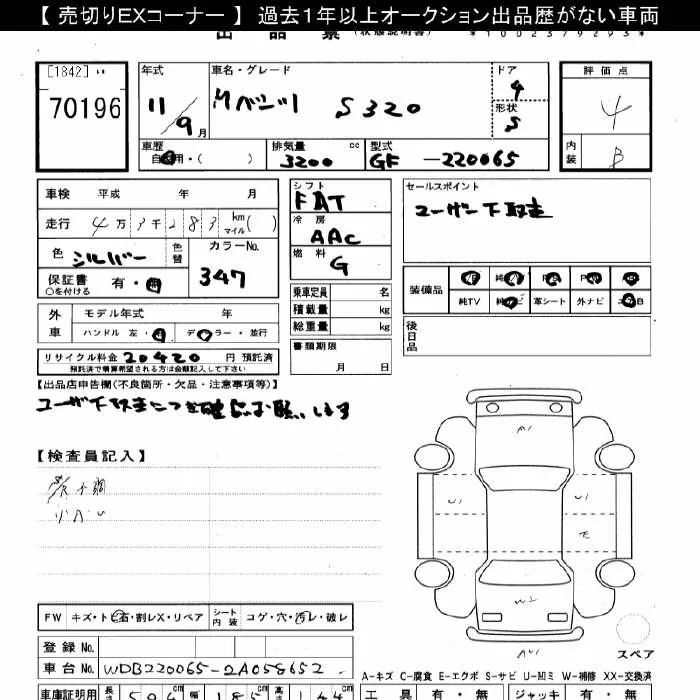 【 売切りEXコーナー 】 過去1年以上オークション出品歴がない車両
出 品 票 (状態説明書) *1002379293*
[1842]
70196
年式
11/9月
車名・グレード
Mベンツ S320
ドア
4
形状
S
評価点
4
内装
B
車歴
自家用・( )
排気量 cc
3200
型式
GF -220065
車検 平成 年 月
走行 4万3千283 km マイル( )
色 シルバー
色替
カラーNo.
347
保証書 有・無
○を付ける
シフト
FAT
冷房
AAC
燃料
G
セールスポイント
ユーザー下取車
装備品
純TV 革シート 外ナビ
後日品
外車
モデル年式 年
ハンドル 左・右 ディーラー・並行
乗車定員 名
積載量 kg
総重量 kg
書類期限
月 日
リサイクル料金 20420 円 預託済
預託済で積算希望される方は金額記入して下さい
【出品店申告欄(不良箇所・欠品・注意事項等)】
ユーザー下取車につき確認お願いします
【検査員記入】
小ヘコ
A1
U1
U1
E
W2
AU1
スペア
FW キズ・ト石・割レX・リペア シート内装 コゲ・穴・汚レ・破レ
登録No.
車台No. WDB220065-2A058652
A-キズ C-腐食 E-エクボ S-サビ U-凹ミ W-補修 XX-交換済
車庫証明用 長さ 504 cm 幅 185 cm 高さ 144 cm
工具 有・無 ジャッキ 有・無